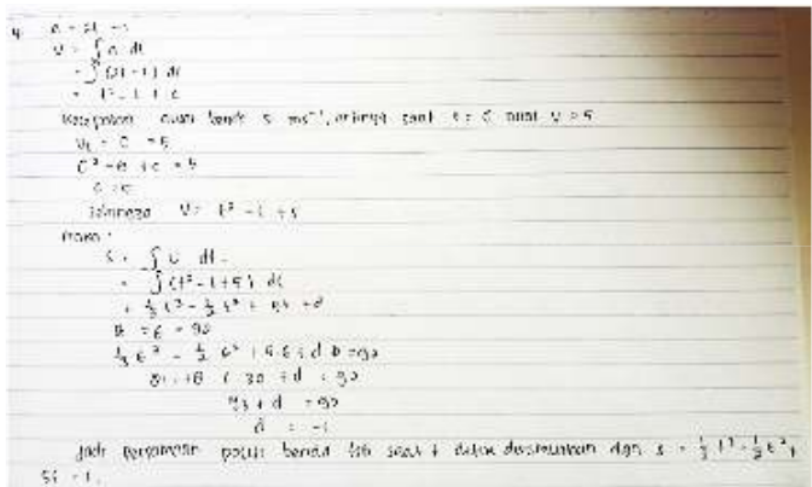 4. a = 2t - 1
v = ∫ a dt
= ∫ (2t - 1) dt
= t² - t + c
Kecepatan awal benda 5 ms⁻¹, artinya saat t = 0 nilai v = 5
= 0 = 5
0² - 0 + c = 5
c = 5
Sehingga v = t² - t + 5
maka :
s = ∫ v dt
= ∫ (t² - t + 5) dt
= 1/3 t³ - 1/2 t² + 5t + d
= 6 = 92
1/3 6³ - 1/2 6² + 5.6 + d = 92
- 18 + 30 + d = 92
+ d = 92
d = -1
Jadi persamaan posisi benda tsb saat t detik dirumuskan dgn s = 1/3 t³ - 1/2 t² +
5t - 1.